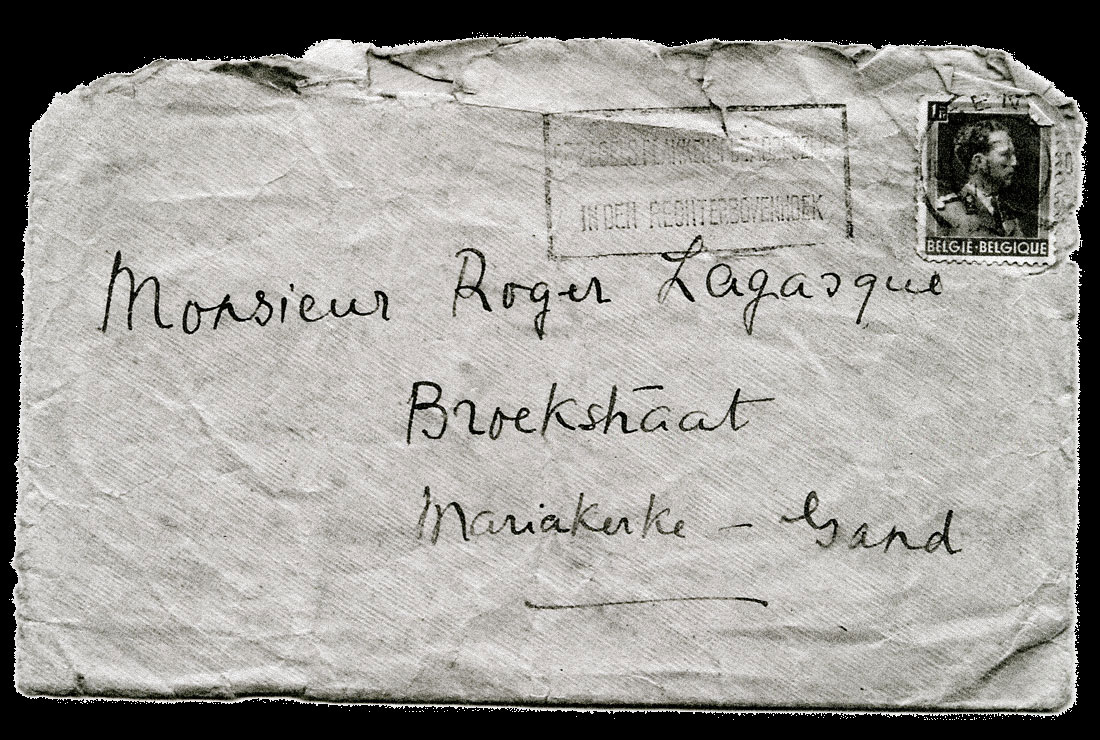 IN DEN RECHTERBOVENHOEK
1 Fr
BELGIË-BELGIQUE
Monsieur Roger Lagasque
Broekstraat
Mariakerke – Gand